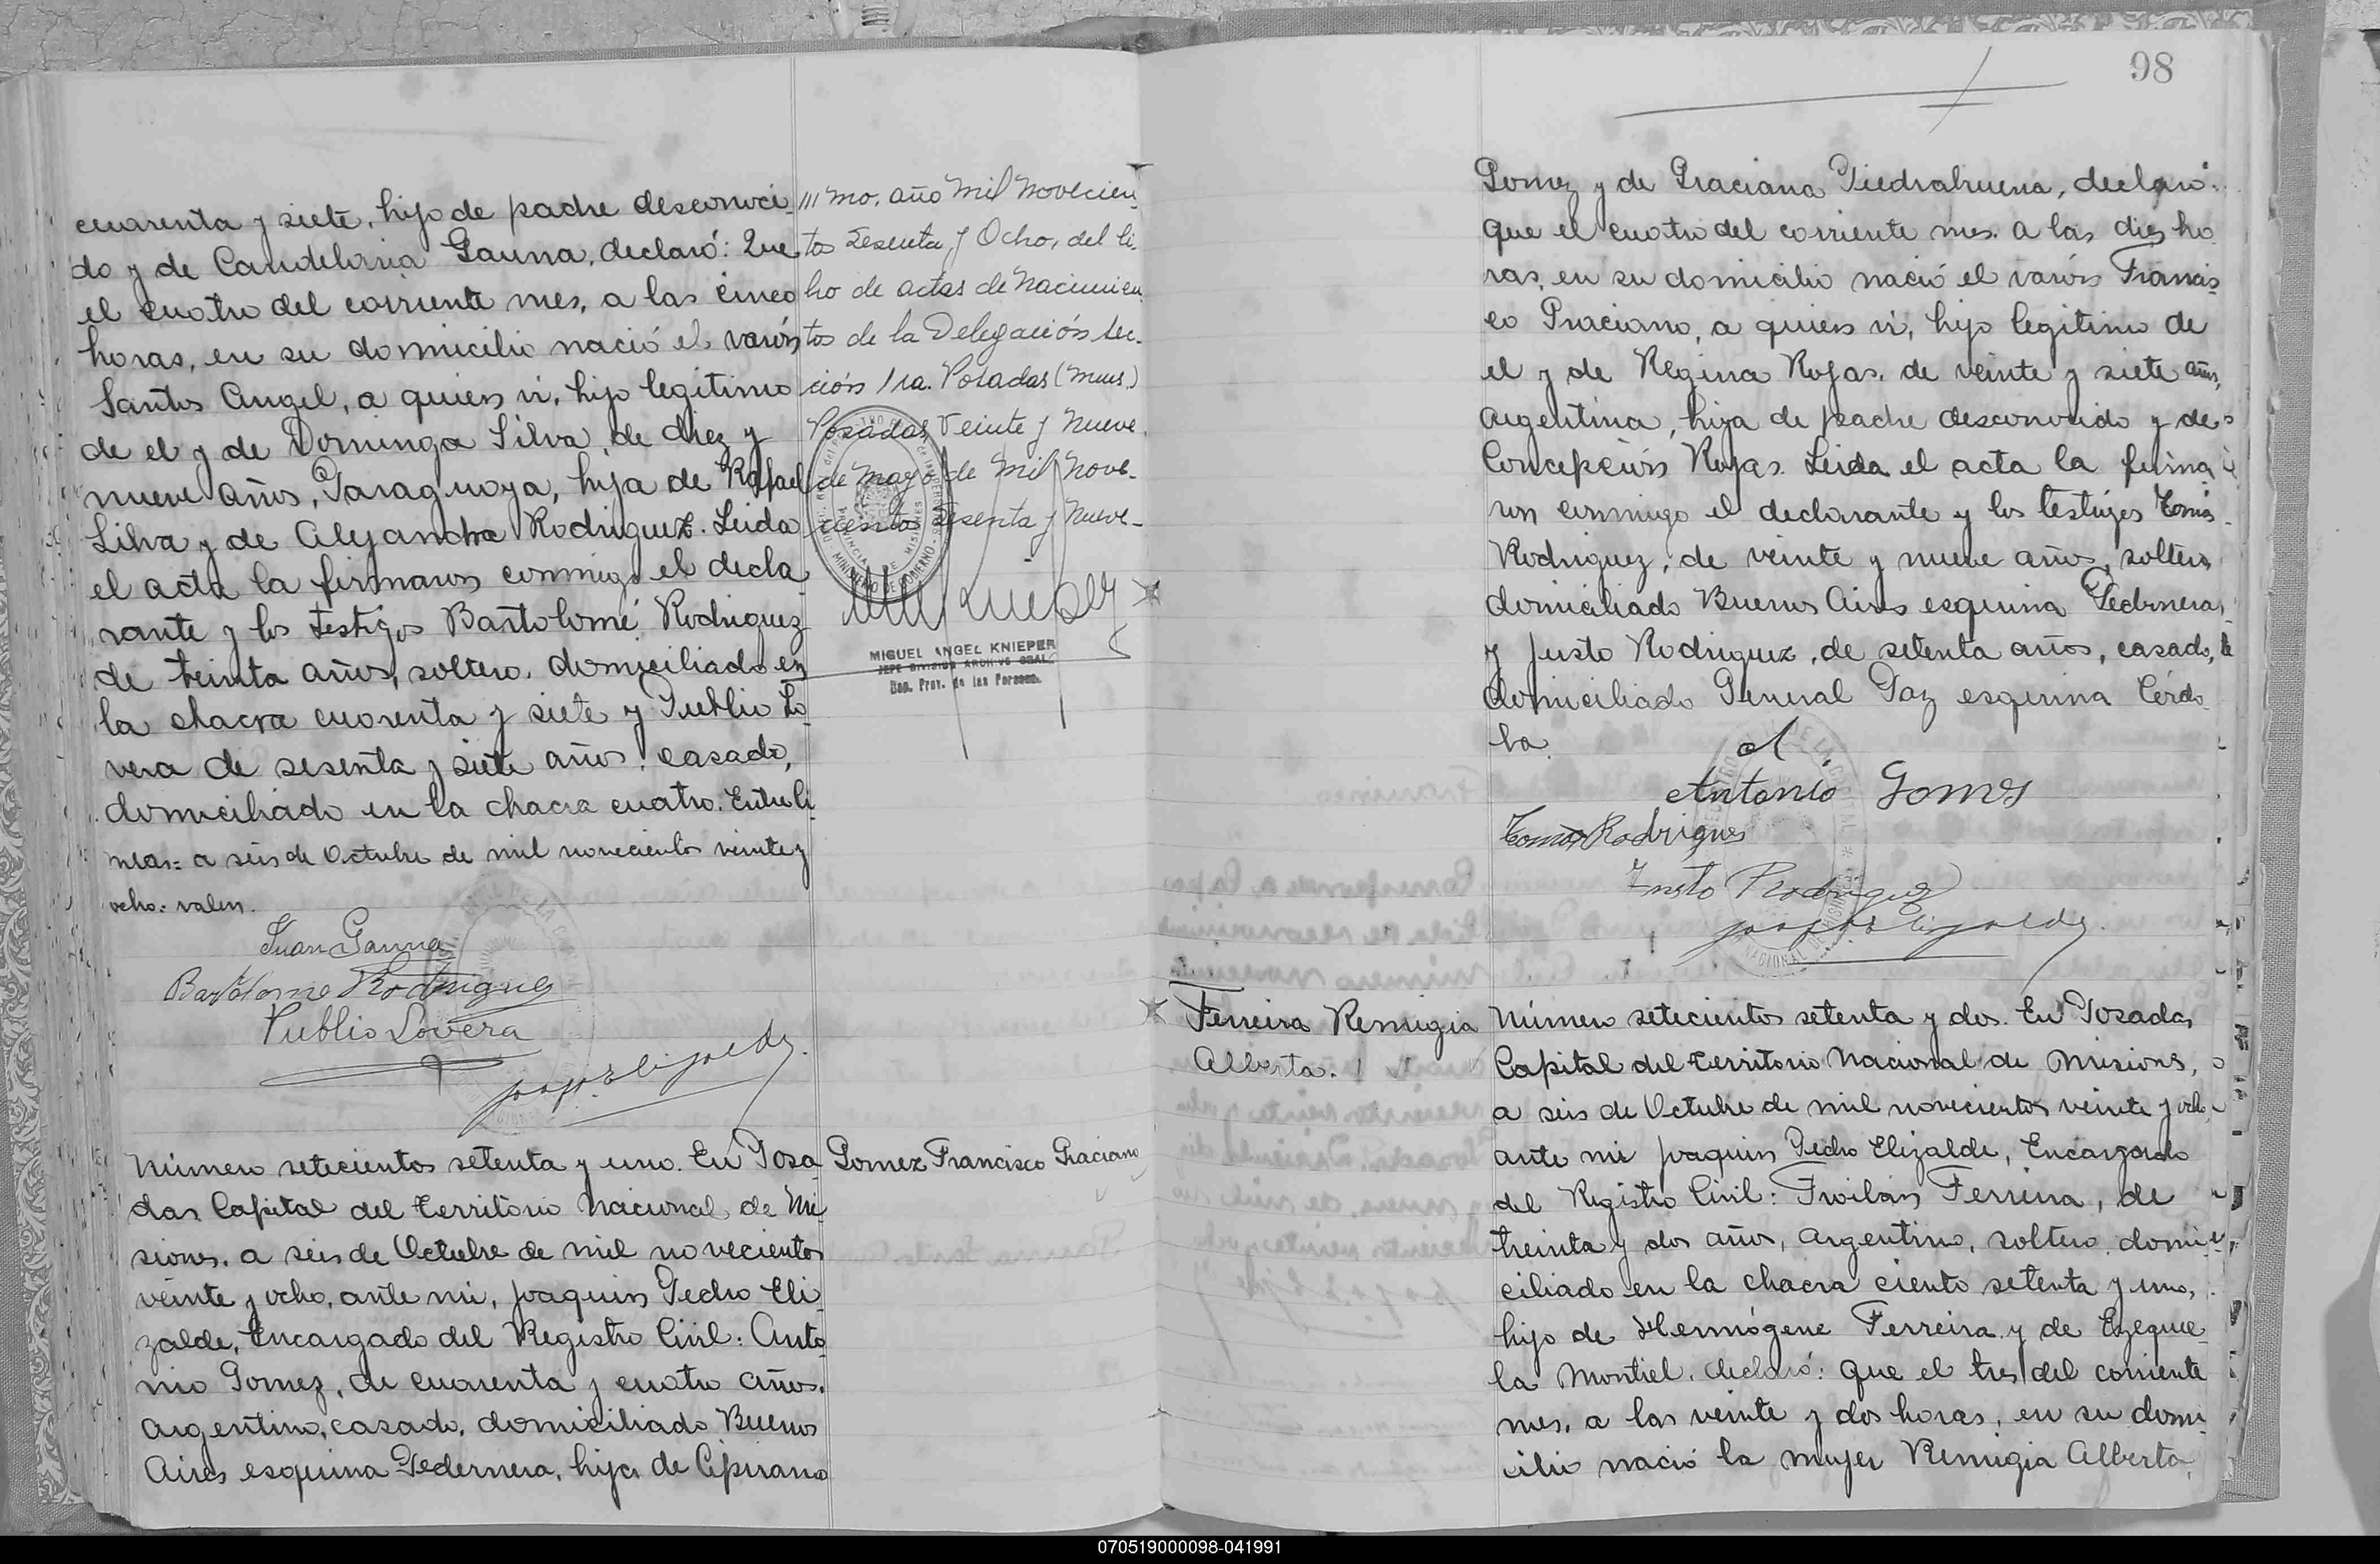 cuarenta y siete, hijo de padre desconoci-
do y de Candelaria Gauna, declaró: Que
el cuatro del corriente mes, a las cinco
horas, en su domicilio nació el varón
Santos Angel, a quien vi, hijo legitimo
de el y de Dominga Silva, de diez y
nueve años, Paraguaya, hija de Rafael
Silva y de Alejandra Rodriguez. Leida
el acta la firmaron conmigo el decla-
rante y los testigos Bartolomé Rodriguez
de treinta años, soltero, domiciliado en
la chacra cuarenta y siete y Publio Lo-
vera de sesenta y siete años, casado,
domiciliado en la chacra cuatro. Entreli-
neas= a seis de Octubre de mil novecientos veinte y
ocho: valen.
Juan Gauna
Bartolome Rodriguez
Publio Lovera
Número setecientos setenta y uno. En Posa-
das, Capital del Territorio Nacional de Mi-
siones, a seis de Octubre de mil novecientos
veinte y ocho, ante mi, Joaquin Pedro Eli-
zalde, Encargado del Registro Civil: Anto-
nio Gomez, de cuarenta y cuatro años,
Argentino, casado, domiciliado Buenos
Aires esquina Pedernera, hijo de Cipriano
mo, año Mil Novecien-
tos Sesenta y Ocho, del li-
bro de actas de Nacimien-
tos de la Delegación Sec-
ción 1ra. Posadas (Mnes.)
Posadas, Veinte y Nueve
de Mayo de Mil Nove-
cientos Sesenta y Nueve-
MIGUEL ANGEL KNIEPER
JEFE DIVISION ARCHIVO GRAL.
Dcc. Prov. de las Personas
Gomez Francisco Graciano
98
Gomez y de Graciana Piedrabuena, declaró:
que el cuatro del corriente mes, a las diez ho-
ras, en su domicilio nació el varón Francis-
co Graciano, a quien vi, hijo legitimo de
el y de Regina Rojas, de veinte y siete años,
Argentina, hija de padre desconocido y de
Concepción Rojas. Leida el acta la firma-
ron conmigo el declarante y los testigos Tomás
Rodriguez, de veinte y nueve años, soltero,
domiciliado Buenos Aires esquina Pedernera,
y Justo Rodriguez, de setenta años, casado,
domiciliado General Paz esquina Córdo-
ba.
Antonio Gomes
Tomas Rodrigues
Justo Rodriguez
Ferreira Remigia
Alberta.
Número setecientos setenta y dos. En Posadas,
Capital del Territorio Nacional de Misiones,
a seis de Octubre de mil novecientos veinte y ocho,
ante mi Joaquin Pedro Elizalde, Encargado
del Registro Civil: Froilán Ferreira, de
treinta y dos años, Argentino, soltero, domi-
ciliado en la chacra ciento setenta y uno,
hijo de Hermógene Ferreira y de Ezequie-
la Montiel, declaró: que el tres del corriente
mes, a las veinte y dos horas, en su domi-
cilio nació la mujer Remigia Alberta,
070519000098-041991